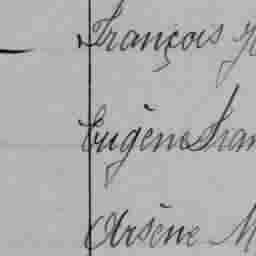 François
Eugène Fran
Arsène M